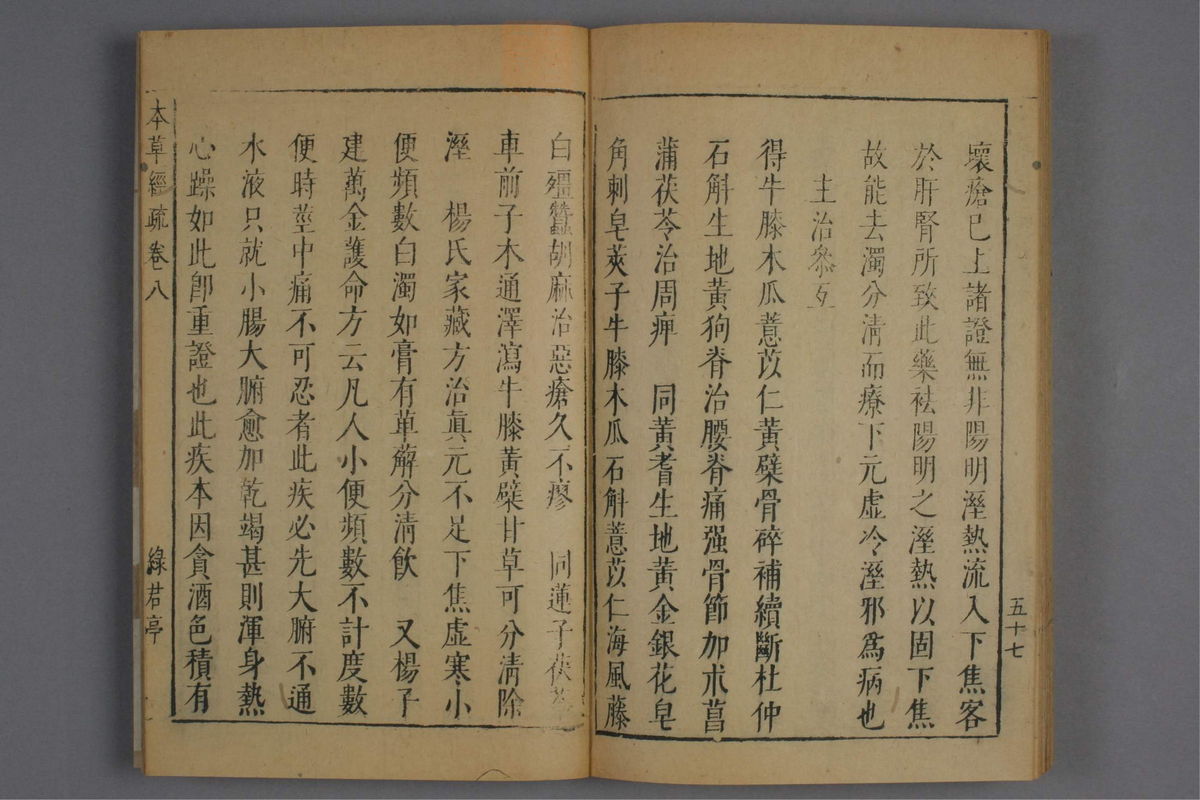 五十七
壞瘡已上諸證無非陽明溼熱流入下焦客
於肝腎所致此藥袪陽明之溼熱以固下焦
故能去濁分清而療下元虛冷溼邪爲病也
主治叅互
得牛膝木瓜薏苡仁黃蘗骨碎補續斷杜仲
石斛生地黃狗脊治腰脊痛强骨節加朮菖
蒲茯苓治周痹　同黃耆生地黃金銀花皂
角刺皂莢子牛膝木瓜石斛薏苡仁海風藤
白殭蠶胡麻治惡瘡久不瘳　同蓮子茯苓
車前子木通澤瀉牛膝黃蘗甘草可分淸除
溼　楊氏家藏方治眞元不足下焦虛寒小
便頻數白濁如膏有萆薢分淸飮　又楊子
建萬金護命方云凡人小便頻數不計度數
便時莖中痛不可忍者此疾必先大腑不通
水液只就小腸大腑愈加乾竭甚則渾身熱
心躁如此卽重證也此疾本因貪酒色積有
本草經疏卷八
綠君亭